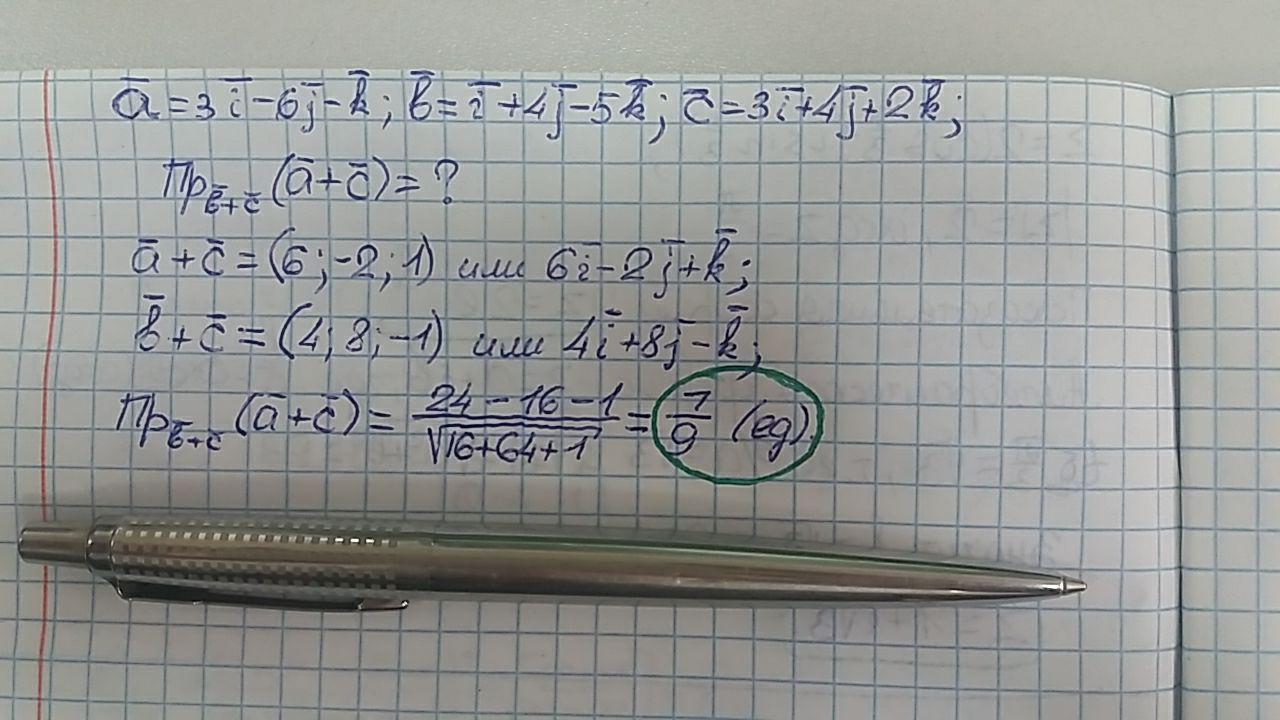 a̅ = 3i̅ − 6j̅ − k̅; b̅ = i̅ + 4j̅ − 5k̅; c̅ = 3i̅ + 4j̅ + 2k̅;
Пр_{b̅+c̅}(a̅ + c̅) = ?
a̅ + c̅ = (6; −2; 1) или 6i̅ − 2j̅ + k̅;
b̅ + c̅ = (4; 8; −1) или 4i̅ + 8j̅ − k̅;
Пр_{b̅+c̅}(a̅ + c̅) = (24 − 16 − 1)/√(16+64+1) = 7/9 (ед).